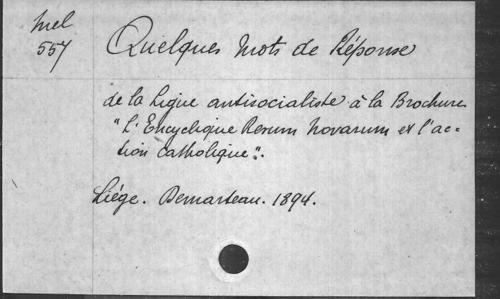 Mel
557
Quelques Mots de Réponse
de la Ligue antisocialiste à la Brochure
"L'Encyclique Rerum Novarum et l'ac-
tion catholique".
Liége. Demarteau. 1894.